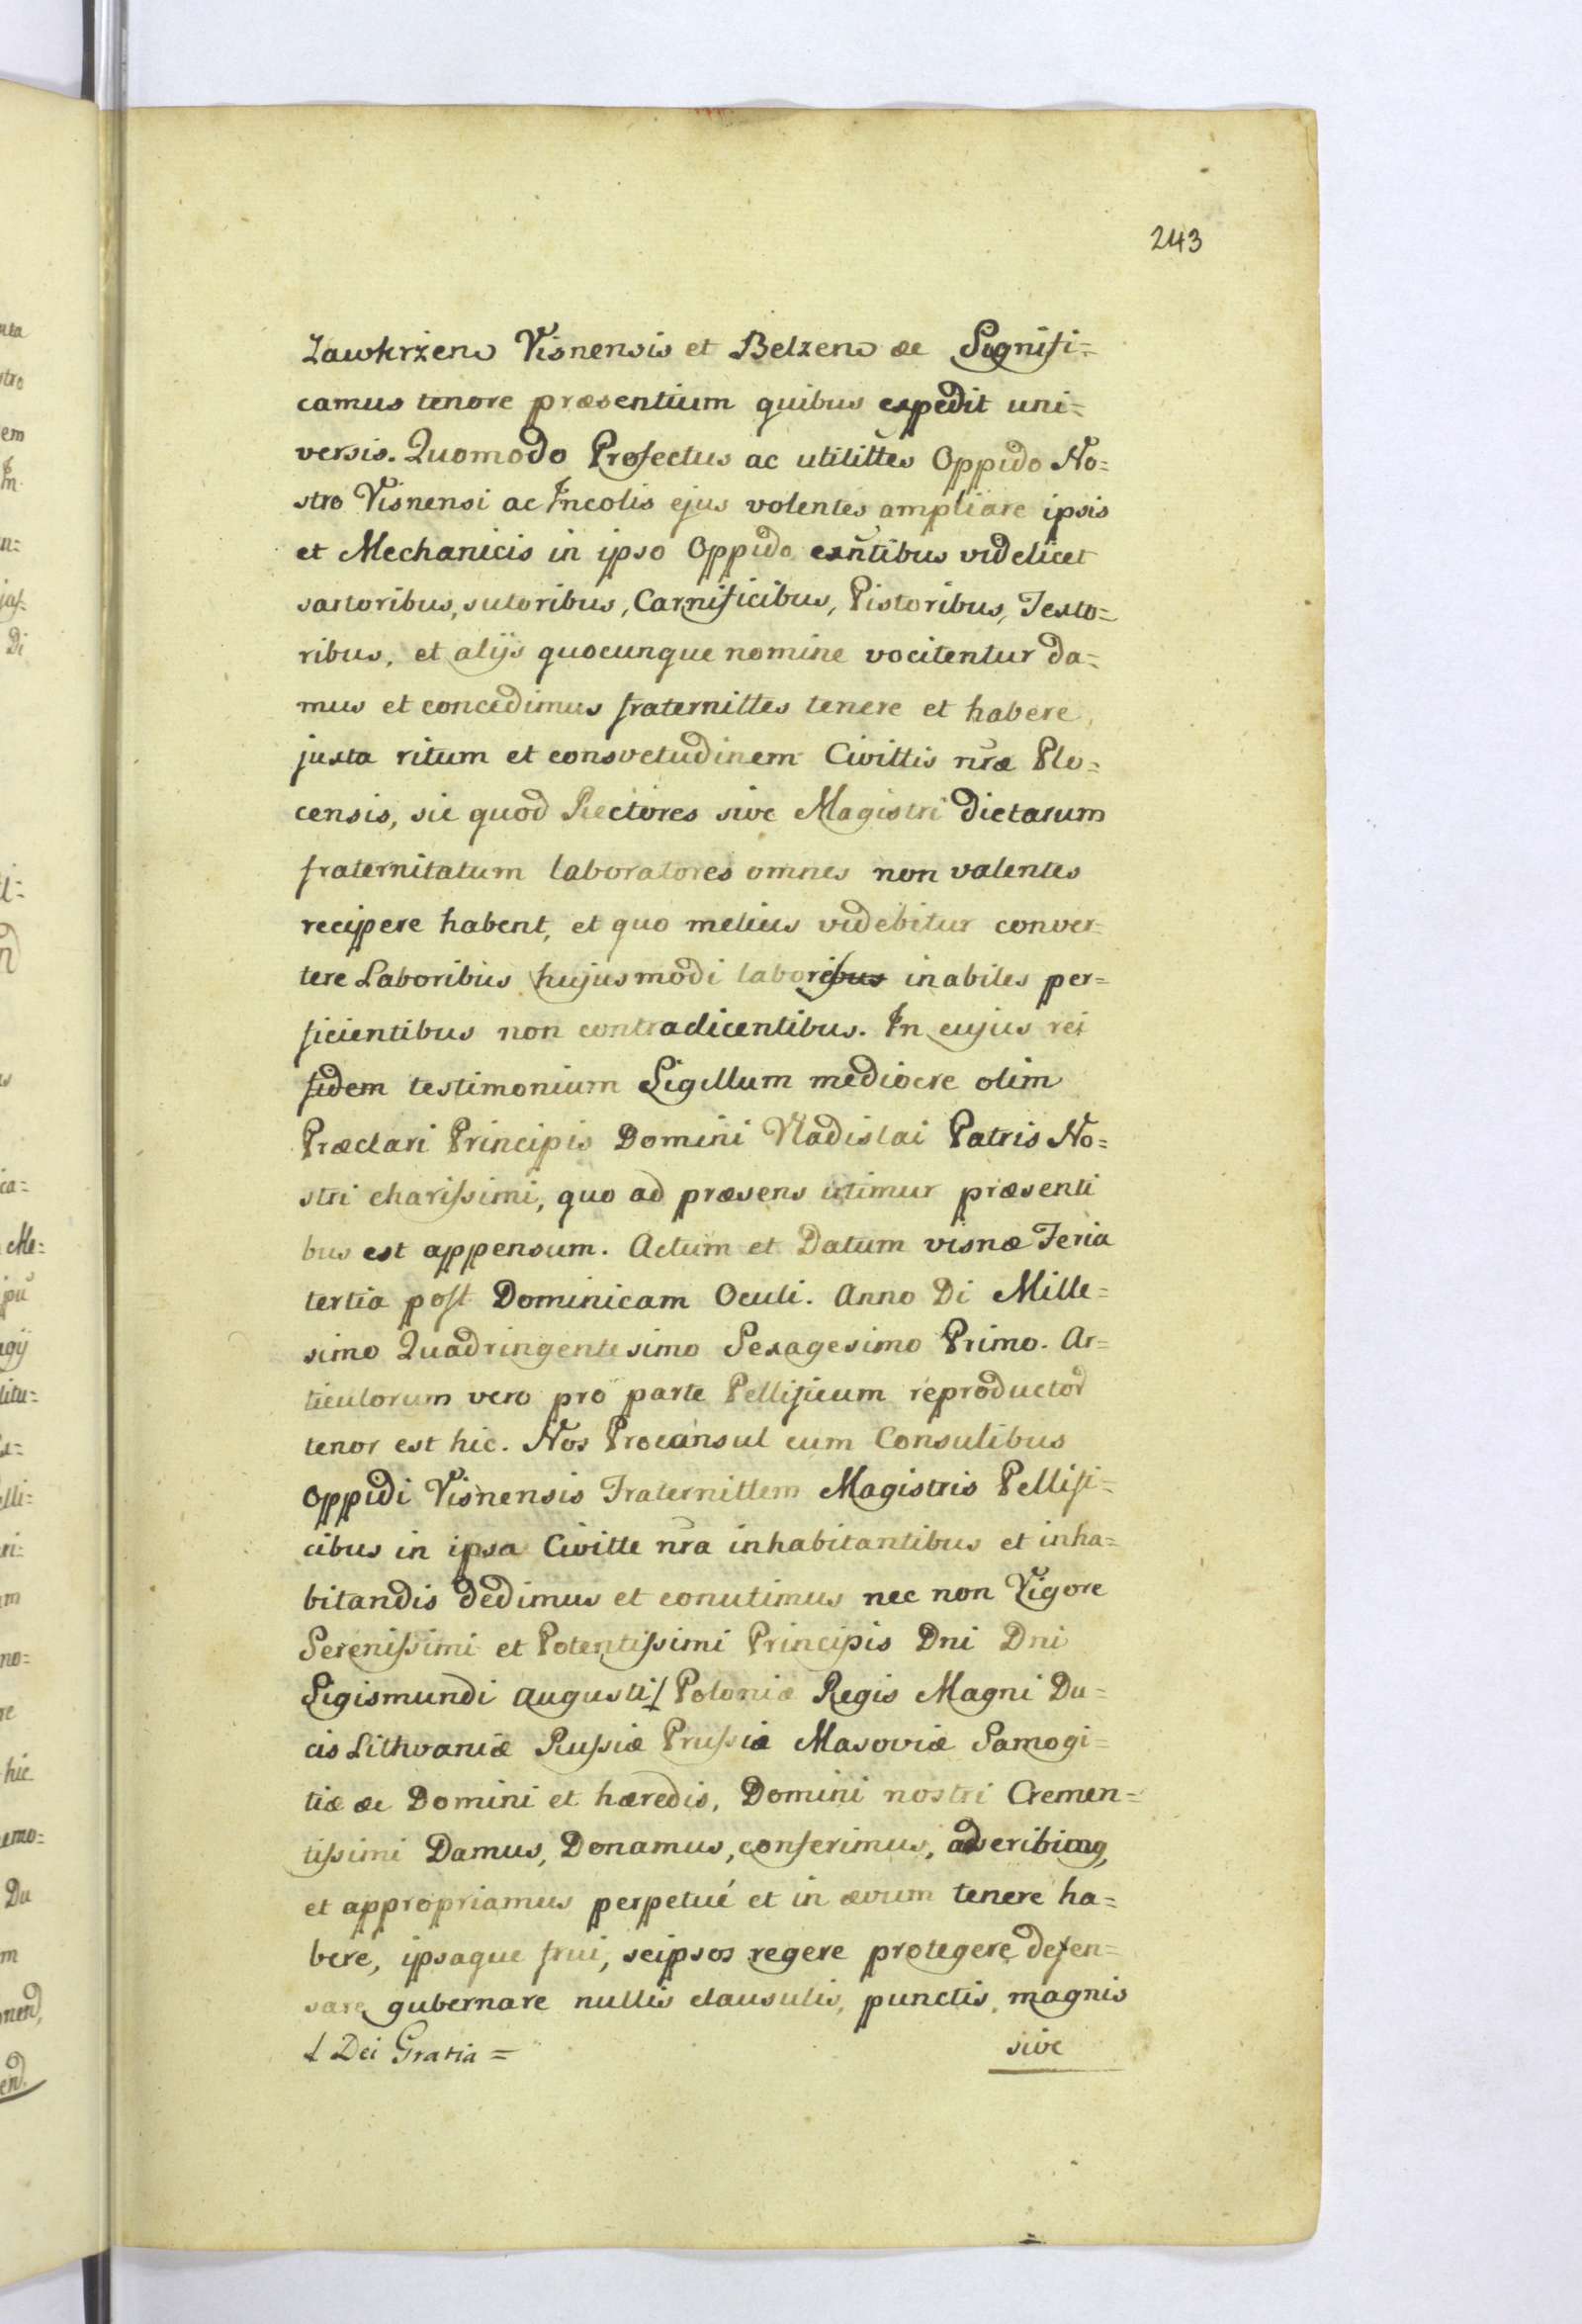 243
Zawkrżens Visnensis et Belzens &c Signifi=
camus tenore præsentium quibus expedit uni=
versis. Quomodo Profectus ac utilittes Oppido No=
stro Visnensi ac Incolis ejus volentes ampliare ipsis
et Mechanicis in ipso Oppido exñtibus videlicet
sartoribus, sutoribus, Carnificibus, Pistoribus, Texto=
ribus, et alijs quocunque nomine vocitentur da=
mus et concedimus fraternittes tenere et habere,
juxta ritum et consvetudinem Civittis nræ Plo=
censis, sic quod Rectores sive Magistri dictarum
fraternitatum laboratores omnes non valentes
recipere habent, et quo melius videbitur conver=
tere Laboribus hujusmodi laboribus inabiles per=
ficientibus non contradicentibus. In cujus rei
fidem testimonium Sigillum mediocre olim
Præclari Principis Domini Vladislai Patris No=
stri charissimi, quo ad præsens utimur præsenti
bus est appensum. Actum et Datum visnæ Feria
tertia post Dominicam Oculi. Anno Di Mille=
simo Quadringentesimo Sexagesimo Primo. Ar=
ticulorum vero pro parte Pellificum reproductor
tenor est hic. Nos Procansul cum Consulibus
Oppidi Visnensis Fraternittem Magistris Pellifi=
cibus in ipsa Civitte nra inhabitantibus et inha=
bitandis dedimus et conutimus nec non Vigore
Serenissimi et Potentissimi Principis Dni Dni
Sigismundi Augusti ł Poloniæ Regis Magni Du=
cis Lithvaniæ Russiæ Prussiæ Masoviæ Samogi=
tiæ &c Domini et hæredis, Domini nostri Cremen=
tissimi Damus, Donamus, conferimus, adscribimg,
et appropriamus perpetué et in ævum tenere ha=
bere, ipsaque frui, seipsos regere protegere defen=
sare gubernare nullis clausulis, punctis, magnis
ł Dei Gratia =
sive